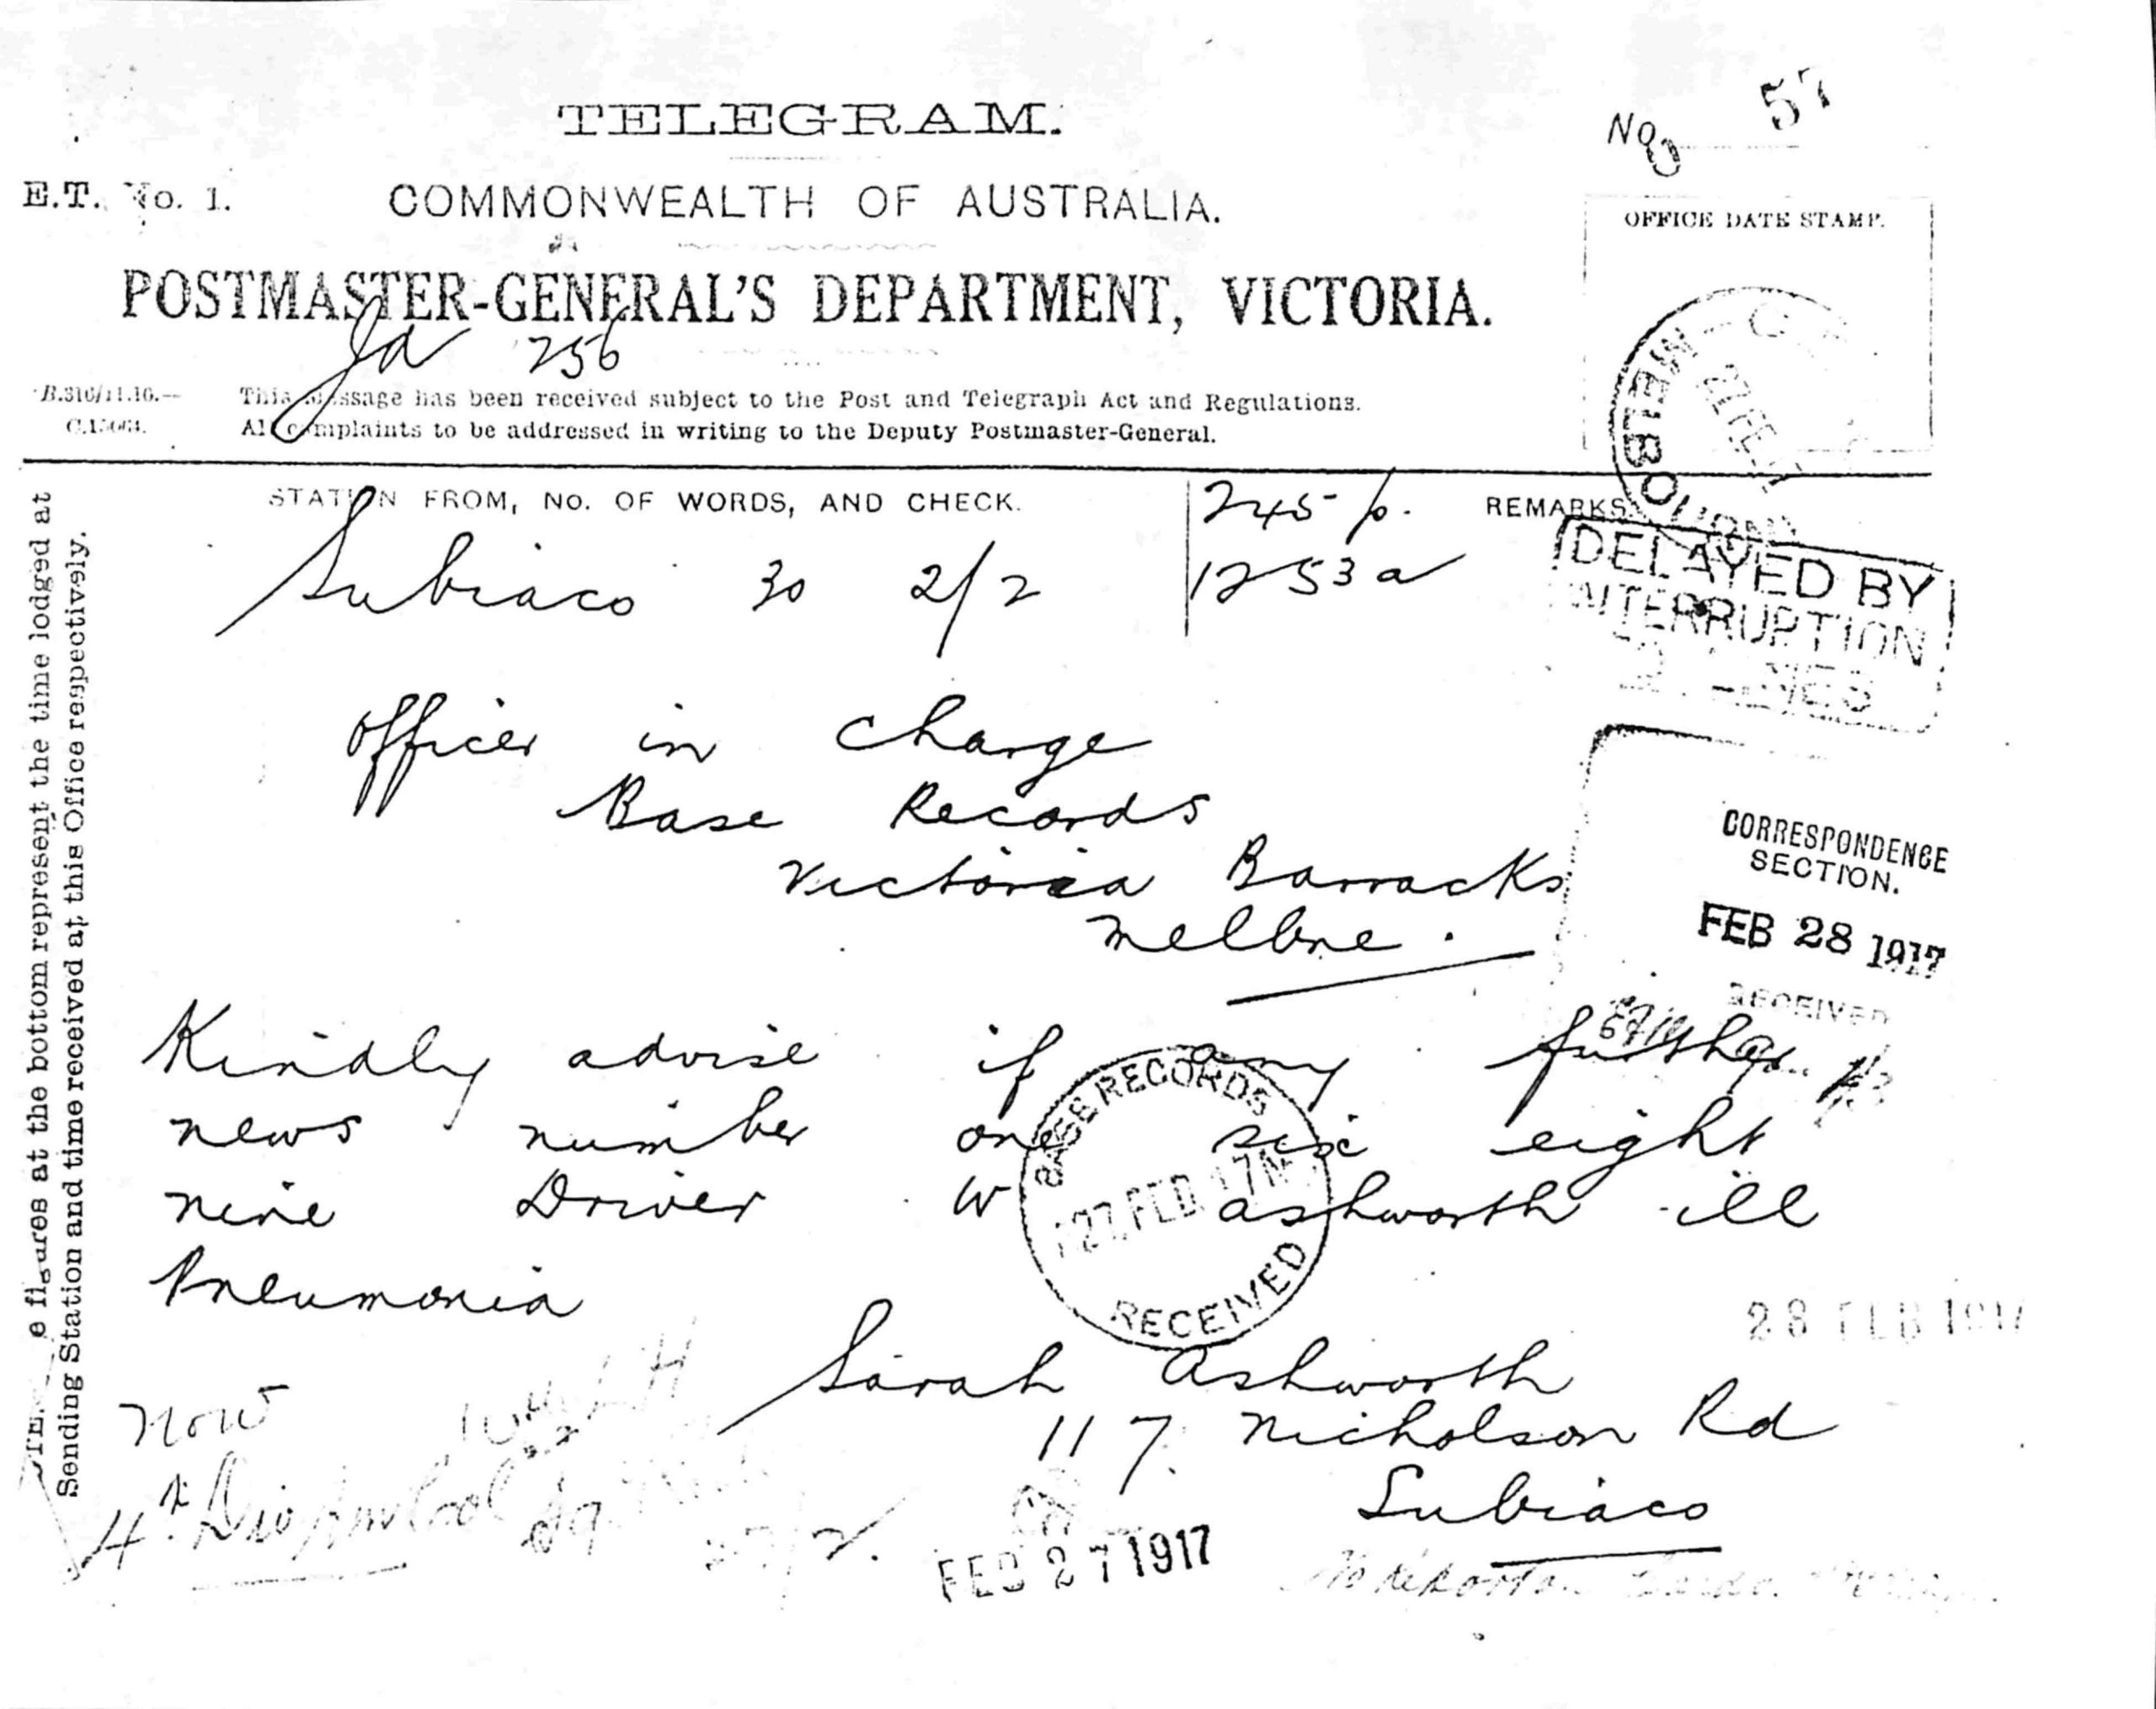 TELEGRAM.
No
57
E.T. No. 1.
COMMONWEALTH OF AUSTRALIA.
OFFICE DATE STAMP.
POSTMASTER-GENERAL'S DEPARTMENT, VICTORIA.
Ja 256
This message has been received subject to the Post and Telegraph Act and Regulations.
All complaints to be addressed in writing to the Deputy Postmaster-General.
MELBOURNE
27 FE
STATION FROM, No. OF WORDS, AND CHECK.
245 p.
REMARKS
Subiaco 30 2/2
1253 a
DELAYED BY
INTERRUPTION
Officer in Charge
Base Records
Victoria Barracks
Melbne.
CORRESPONDENCE
SECTION.
FEB 28 1917
RECEIVED
Kindly advise if any further
news number one six eight
nine Driver W Ashworth ill
Pneumonia
BASE RECORDS
27 FEB 17
RECEIVED
28 FEB 1917
Sarah Ashworth
117 Nicholson Rd
Subiaco
now
4th Div
FEB 27 1917
e figures at the bottom represent the time lodged at
Sending Station and time received at this Office respectively.